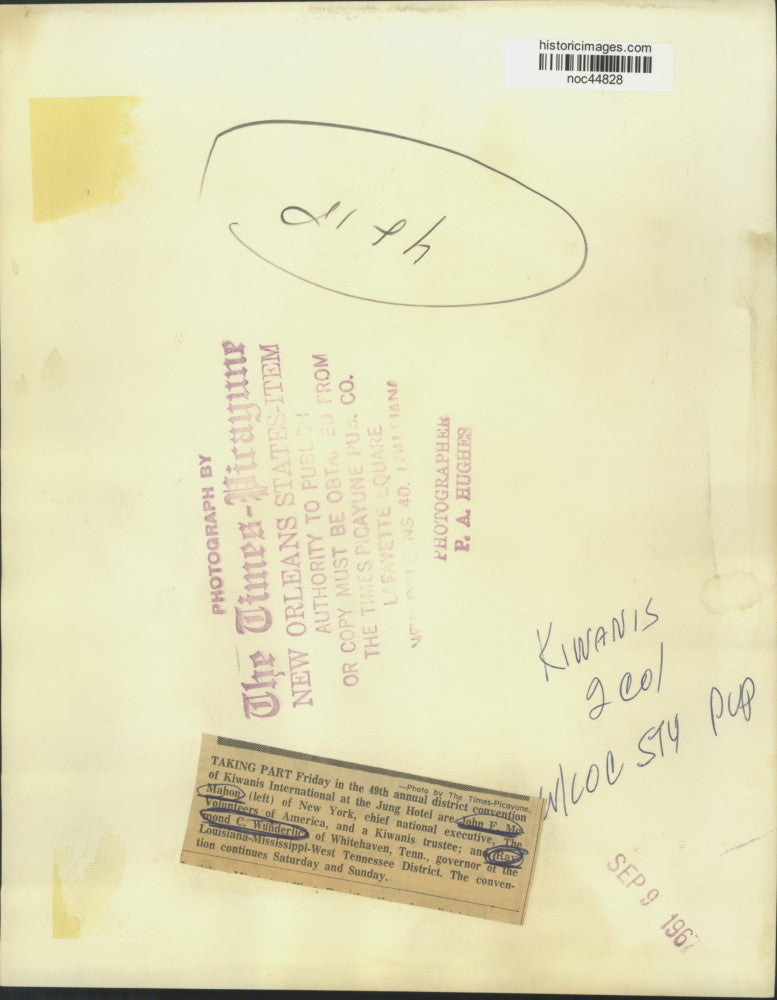 historicimages.com
noc44828
PHOTOGRAPH BY
The Times-Picayune
NEW ORLEANS STATES-ITEM
AUTHORITY TO
OR COPY MUST BE FROM
THE TIMES PICAYUNE PUB. CO.
LAFAYETTE SQUARE
40,
PHOTOGRAPHER
P. A. HUGHES
KIWANIS
2 col
W/LOC STY PUP
—Photo by The Times-Picayune.
TAKING PART Friday in the 49th annual district convention
of Kiwanis International at the Jung Hotel are John F. Mc
Mahon (left) of New York, chief national executive, The
Volunteers of America, and a Kiwanis trustee; and Ray
mond C. Wunderlic of Whitehaven, Tenn., governor of the
Louisiana-Mississippi-West Tennessee District. The conven-
tion continues Saturday and Sunday.
SEP 9 1967